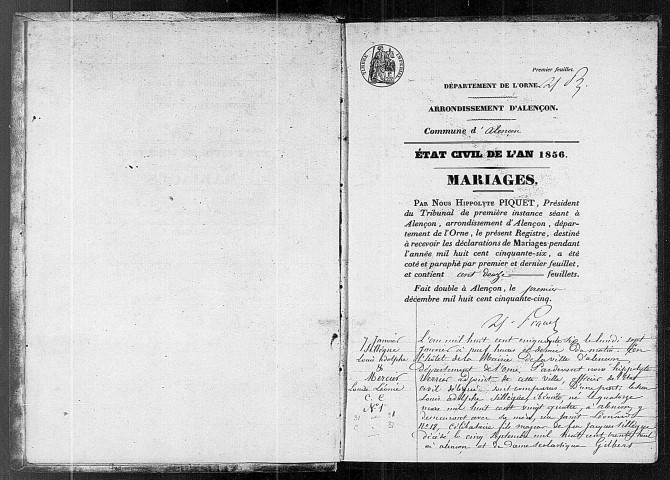 Premier feuillet.
DÉPARTEMENT DE L'ORNE.
ARRONDISSEMENT D'ALENÇON.
Commune d'Alençon
ÉTAT CIVIL DE L'AN 1856.
MARIAGES.
PAR NOUS HIPPOLYTE PIQUET, Président
du Tribunal de première instance séant à
Alençon, arrondissement d'Alençon, dépar-
tement de l'Orne, le présent Registre, destiné
à recevoir les déclarations de Mariages pendant
l'année mil huit cent cinquante-six, a été
coté et paraphé par premier et dernier feuillet,
et contient cent douze feuillets.
Fait double à Alençon, le premier
décembre mil huit cent cinquante-cinq.
H. Piquet
7 Janvier
Louis Adolphe
&
Mercier
Louise Léonie
C. C
N° 1
L'an mil huit cent cinquante six le lundi sept
janvier à neuf heures et demie du matin, En
l'hôtel de la Mairie de la ville d'Alençon
département de l'Orne, Pardevant nous hippolyte
adjoint de cette ville, officier de l'état
civil sont comparus, D'une part le sieur
Louis adolphe ébéniste, né le quatorze
mars mil huit cent vingt quatre, à alençon y
demeurant avec sa mère, rue saint Léonard
N° 18, célibataire fils majeur de feu jacques
décédé le cinq septembre mil huit cent trente huit
à alençon et de dame scholastique